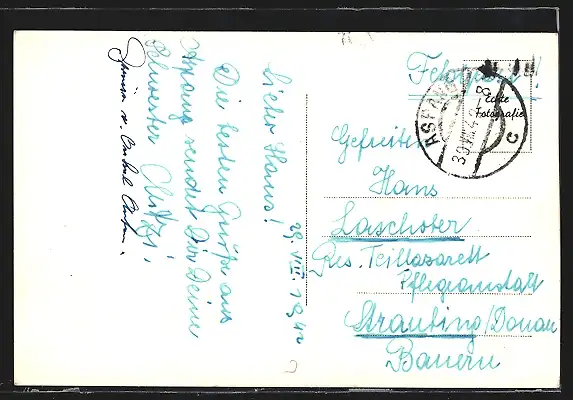 29. VIII. 1942
Lieber Hans!
Die besten Grüße aus
Aspang sendet Dir Deine
Schwester Mitzi.
Feldpost!
Echte
Fotografie
ASPANG
30.VIII.42
c
Gefreiten
Hans
Laschober
Res. Teillazarett
Pflegeanstalt
Straubing/Donau
Bayern